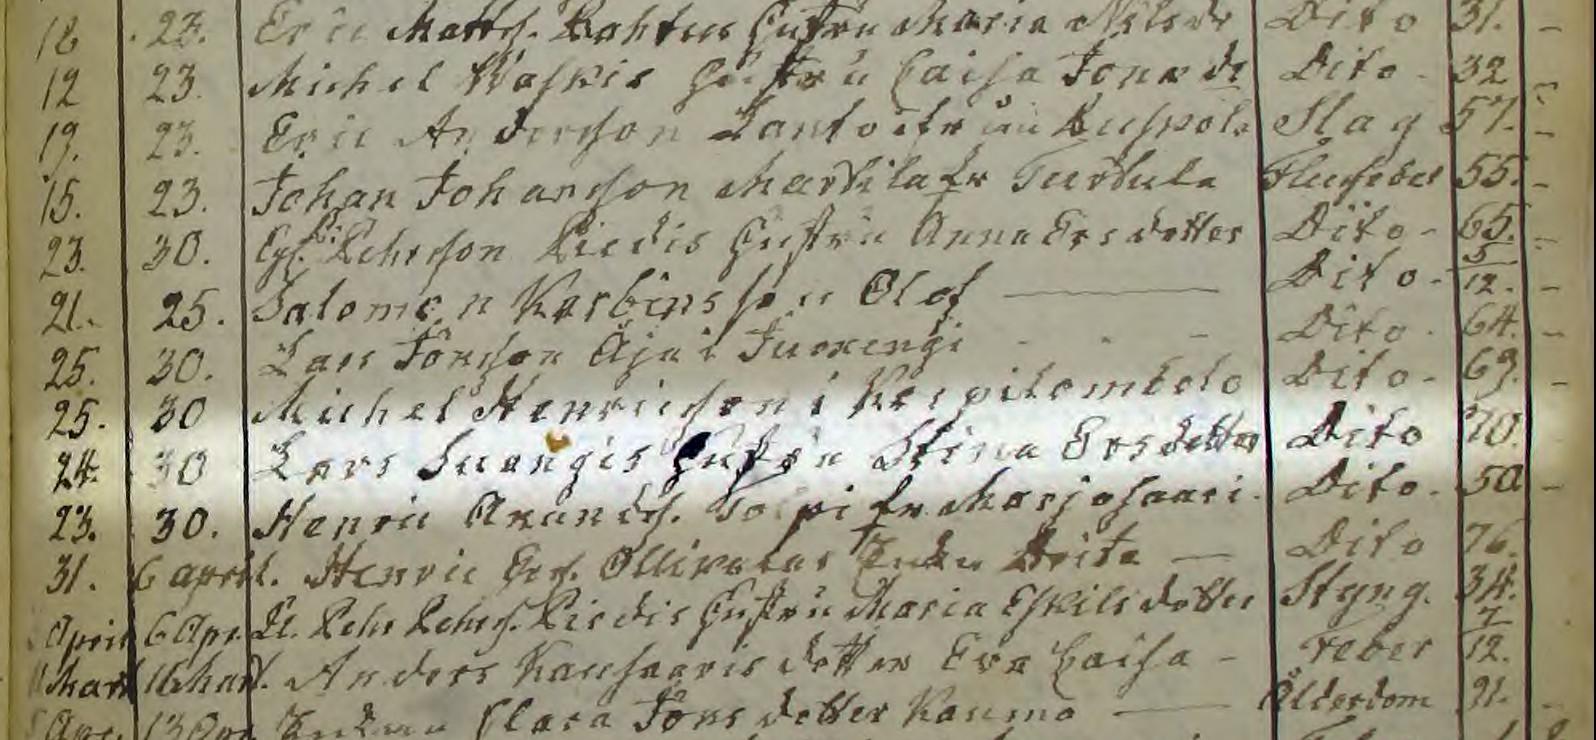 18 23. Eric Matts. Rahtus Hustru Maria Nilsdr Dito 31. -
12 23. Michel Waskis Hustru Caisa Jonsdr Dito - 32 -
19. 23. Eric Anderson Lanto ifrån Ruskola Slag 57. -
15. 23. Johan Johansson Martila fr Turtula 55. -
23. 30. Pehrsson Riedis Hustru Anna Ersdotter Dito - 65. -
21. 25. Salomon Karbinsson Olof Dito - 5/12. -
25. 30. Lars Jönsson Äja i Juoxengi Dito - 64. -
25. 30 Michel Henricsson i Korpilombolo Dito - 69. -
24. 30 Lars Suangis Hustru Stina Ersdotter Dito 70. -
23. 30. Henric fr Marjosaari. Dito - 50 -
31. 6 april. Henric Ers. Enkn Brita - Dito 76.
April 6 Apr. Pehr Pehrs. Riedis Hustru Maria Eskilsdotter Styng. 34.
Mart 16 Mart. Anders dotter Eva Caisa - Feber 7/12.
Apr. 13 Apr Enkan Clara Jönsdotter Kauma Ålderdom 91. -